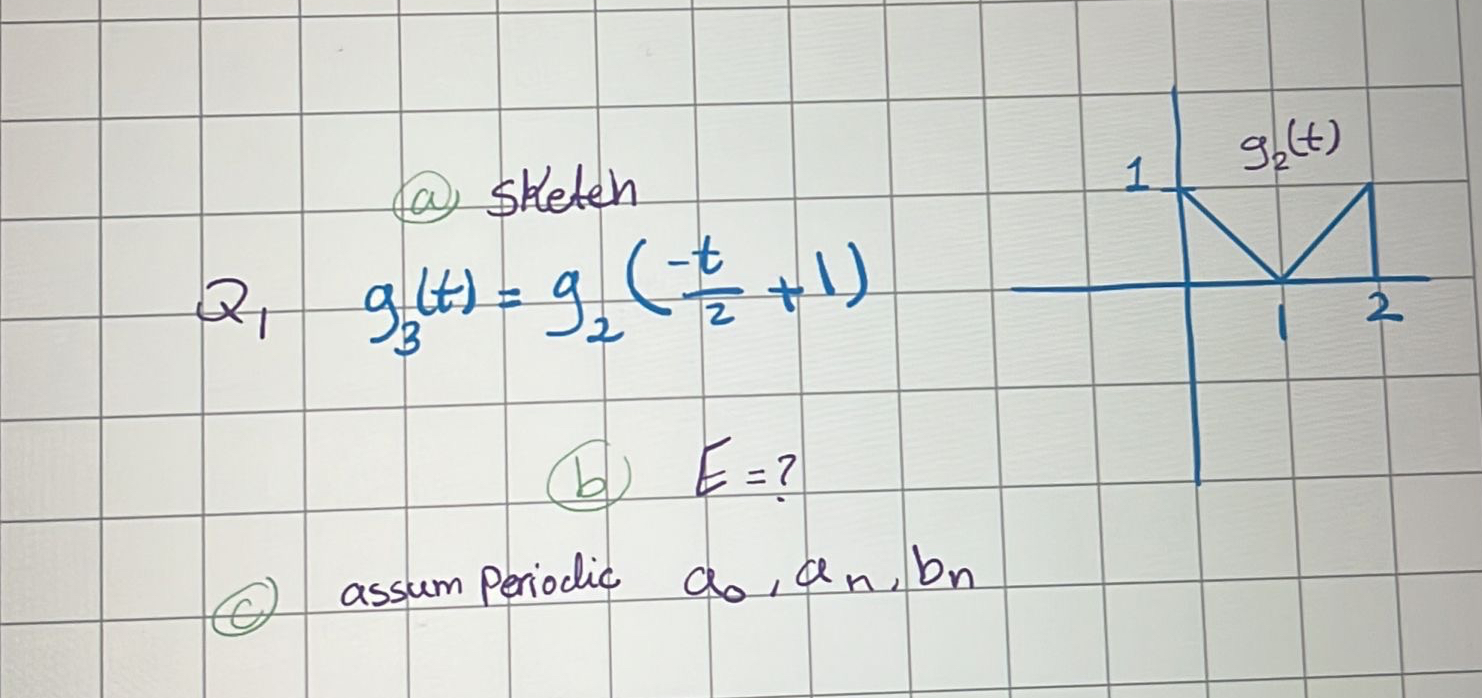 ⓐ Sketch
Q₁ g₃(t) = g₂(-t/2 + 1)
ⓑ E = ?
ⓒ assum Periodic a₀, aₙ, bₙ
g₂(t)
1
1
2